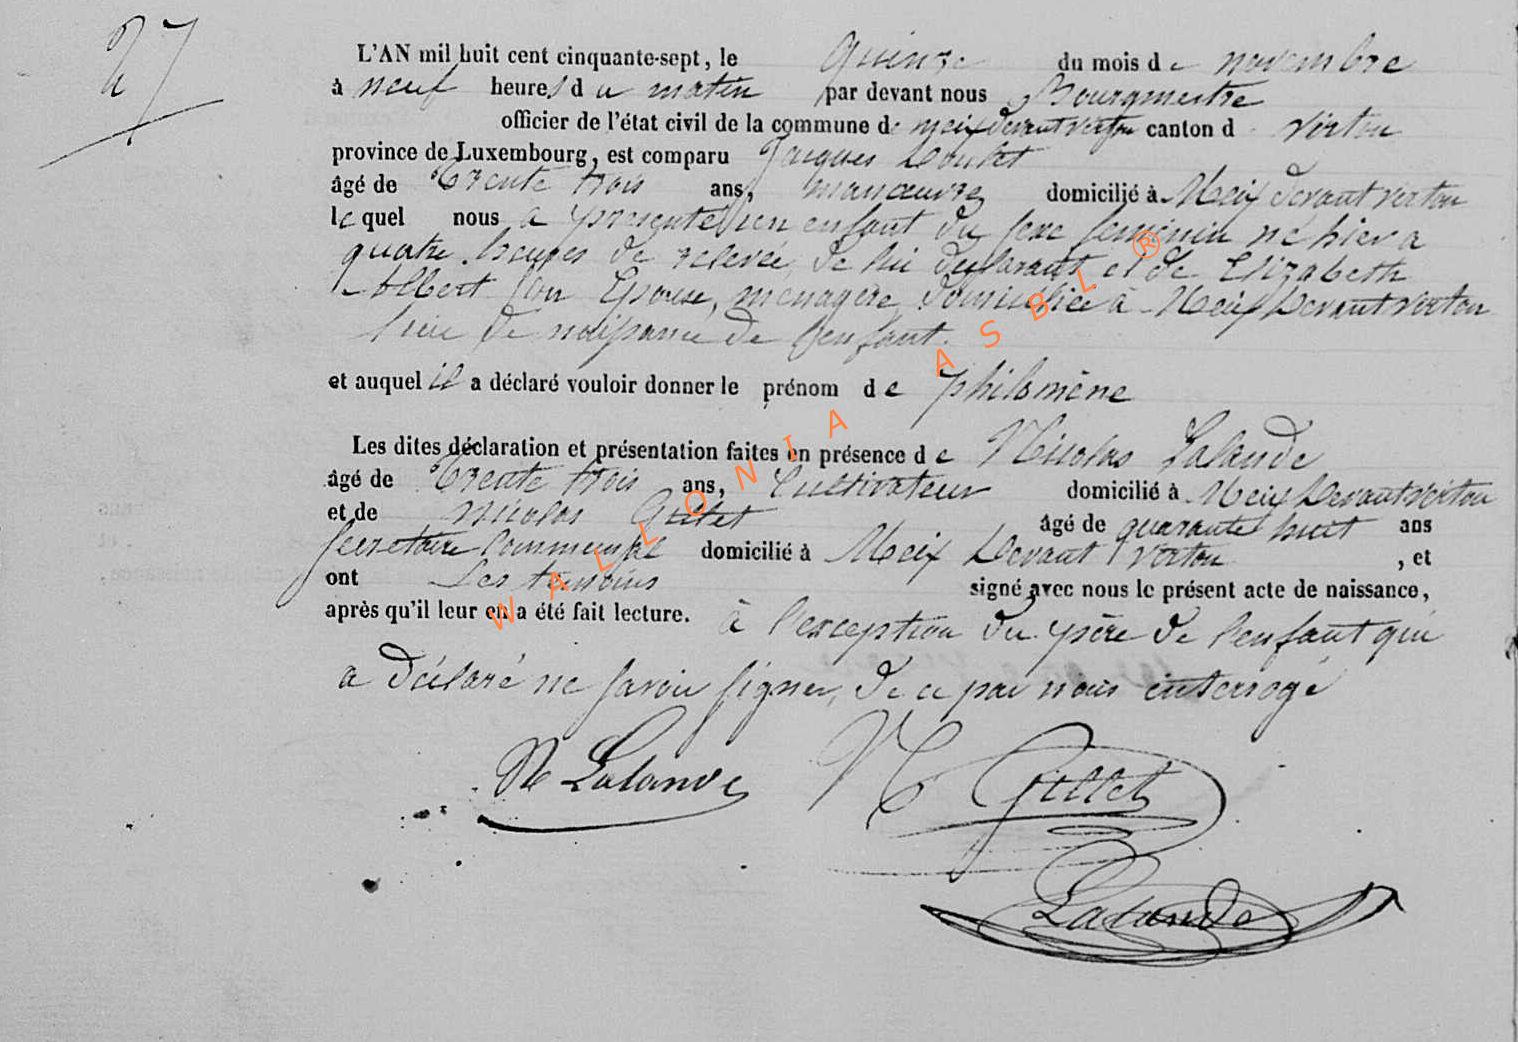 27
L'AN mil huit cent cinquante-sept, le Quinze du mois de novembre
à neuf heures du matin par devant nous Bourgmestre
officier de l'état civil de la commune de meix devant virton canton d virton
province de Luxembourg, est comparu Jacques
âgé de Trente trois ans, manœuvre domicilié à Meix devant virton
lequel nous a présenté un enfant du sexe feminin né hier a
quatre heures de relevée, de lui declarant et de Elizabeth
Albert son Epouse, menagère, domiciliée à Meix Devant virton
lieu de naissance de l'enfant.
et auquel il a déclaré vouloir donner le prénom de philomène
Les dites déclaration et présentation faites en présence de Nicolas Lalande
âgé de Trente trois ans, Cultivateur domicilié à Meix Devant virton
et de Nicolas Gillet âgé de quarante huit ans
secretaire Communal domicilié à Meix Devant virton , et
ont Les temoins signé avec nous le présent acte de naissance,
après qu'il leur en a été fait lecture. à l'exception du père de l'enfant qui
a déclaré ne savoir signer, de ce par nous interrogé
N Lalande N Gillet
Lalande
WALLONIA ASBL ®